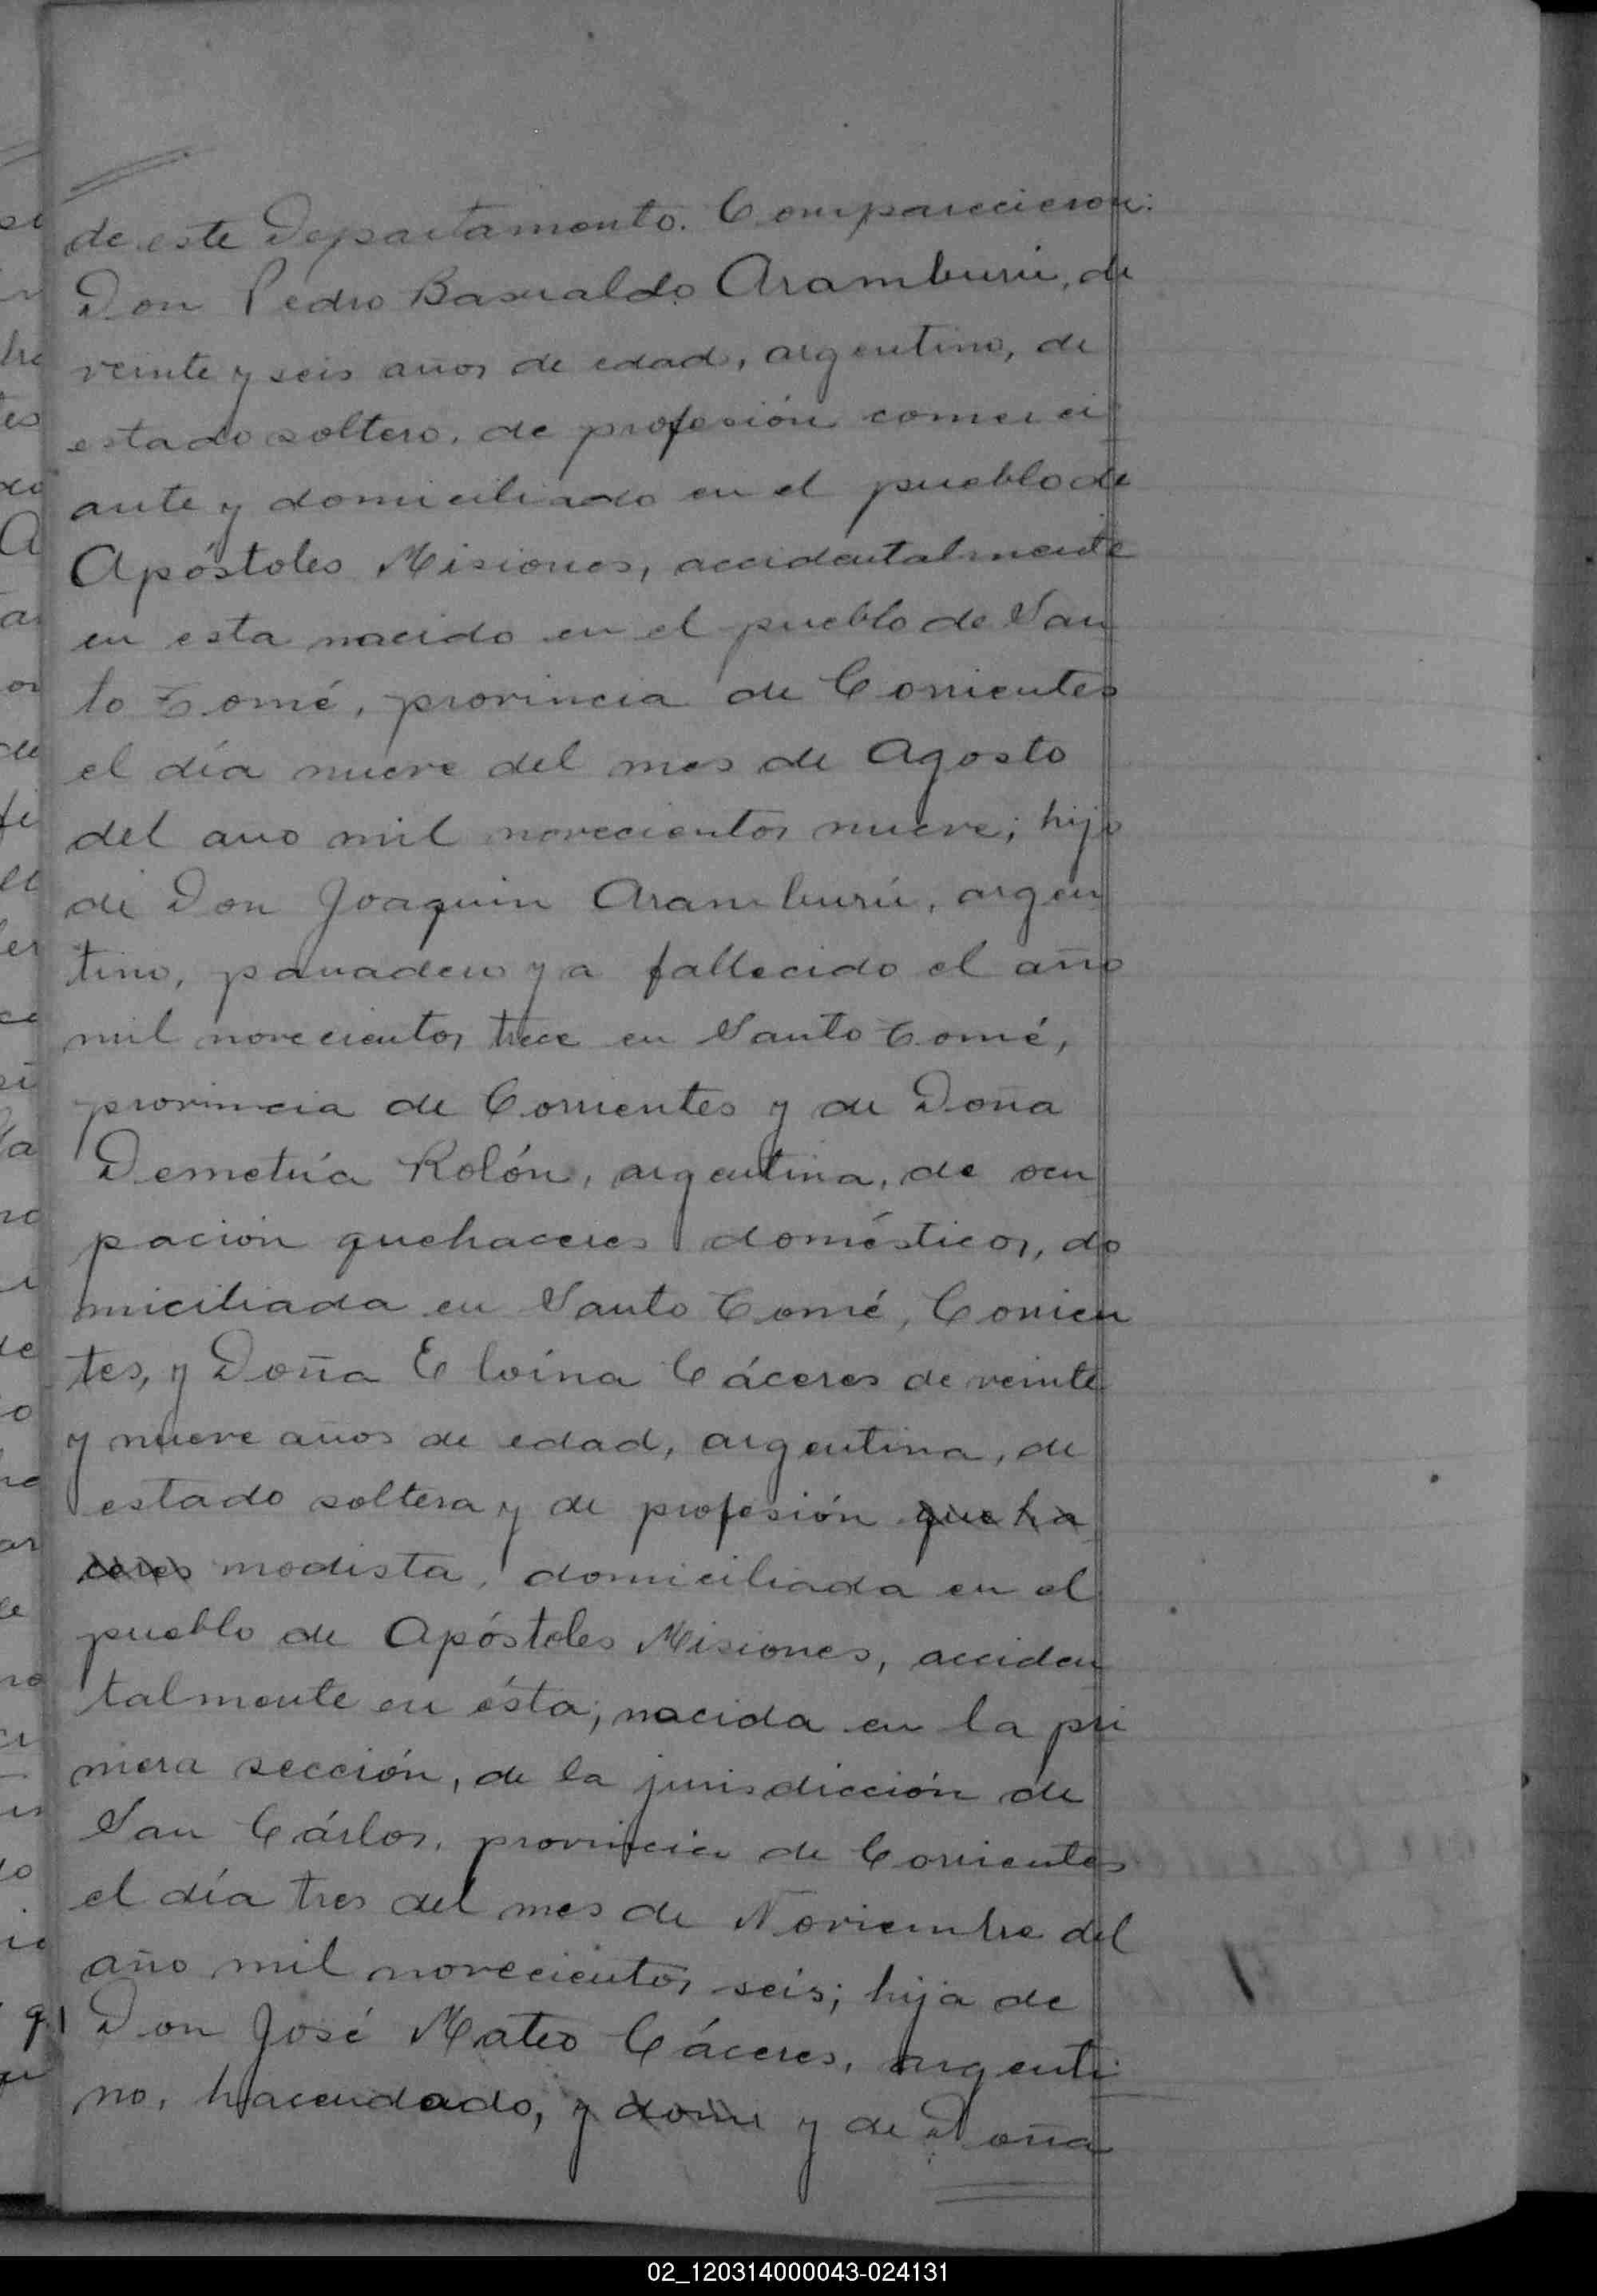 de este Departamento. Comparecieron:
Don Pedro Basualdo Aramburú, de
veinte y seis años de edad, argentino, de
estado soltero, de profesión comerci
ante y domiciliado en el pueblo de
Apóstoles Misiones, accidentalmente
en esta nacido en el pueblo de San
to Tomé, provincia de Corrientes
el día nueve del mes de Agosto
del año mil novecientos nueve; hijo
de Don Joaquin Aramburú, argen
tino, panadero ya fallecido el año
mil novecientos trece en Santo Tomé,
provincia de Corrientes y de Doña
Demetria Rolón, argentina, de ocu
pación quehaceres domésticos, do
miciliada en Santo Tomé, Corrien
tes, y Doña Eloína Cáceres de veinte
y nueve años de edad, argentina, de
estado soltera y de profesión queha
ceres modista, domiciliada en el
pueblo de Apóstoles Misiones, acciden
talmente en ésta; nacida en la pri
mera sección, de la jurisdicción de
San Cárlos, provincia de Corrientes
el día tres del mes de Noviembre del
año mil novecientos seis; hija de
Don José Mateo Cáceres, argenti
no, hacendado, y domi y de Doña
02_120314000043-024131